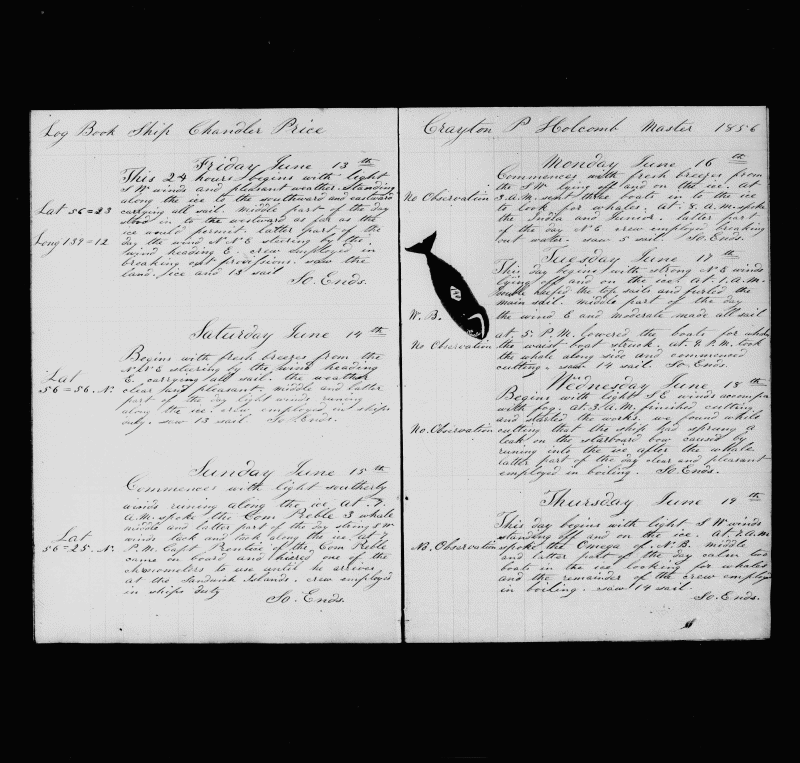 Log Book Ship Chandler Price
Friday June 13th
This 24 hours begins with light
S W winds and pleasant weather. Standing
along the ice to the southward and eastward
Lat 56=23
carrying all sail. middle part of the day
stood in to the westward as far as the
ice would permit. latter part of the
Long 139=12
day the wind N N E steering by the
wind heading E. crew employed in
breaking out provisions. saw the
land. ice and 13 sail
So. Ends.
Saturday June 14th
Begins with fresh breezes from the
N N E steering by the wind heading
Lat
E. carrying all sail. the weather
56=56. N.
clear and pleasant. middle and latter
part of the day light winds runing
along the ice. crew employed in ships
duty. saw 13 sail So. Ends.
Sunday June 15th
Commences with light southerly
winds runing along the ice. At 7.
A.M. spoke the Com Preble 3 whale
middle and latter part of the day string S W
Lat
winds tack and tack along the ice. at 7
56=25. N.
P.M. Capt. Prentice of the Com Preble
came on board and hiered one of the
chronometers to use until he arrives
at the Sandwich Islands. crew employed
in ships duty
So. Ends.
Crayton P Holcomb Master 1856
Monday June 16th
Commences with fresh breezes from
the S W lying off and on the ice. at
No Observation
3. A.M. sent three boats in to the ice
to look for whales. at. 8. A.M. spoke
the India and Junior. latter part
of the day N E crew employed breaking
out water. saw 5 sail. So. Ends.
Tuesday June 17th
This day begins with strong N E winds
lying off and on the ice. At. 1. A.M.
double reefed the top sails and furled the
main sail. middle part of the day
W. B.
the wind E and moderate made all sail
at 5. P.M. lowered the boats for whales
No Observation
the waist boat struck. at. 9. P.M. took
the whale along side and commenced
cutting. saw 14 sail. So. Ends.
Wednesday June 18th
Begins with light S E winds accompa
with fog. at. 3. A.M. finished cutting
and started the works. we found while
No. Observation
cutting that the ship has sprung a
leak on the starboard bow caused by
runing into the ice after the whale
latter part of the day clear and pleasant
employed in boiling. So. Ends.
Thursday June 19th
This day begins with light S W winds
standing off and on the ice. At. 8. A.M.
No. Observation
spoke the Omega of N. B. middle
and latter part of the day calm two
boats in the ice looking for whales
and the remainder of the crew employed
in boiling. saw 14 sail.
So. Ends.